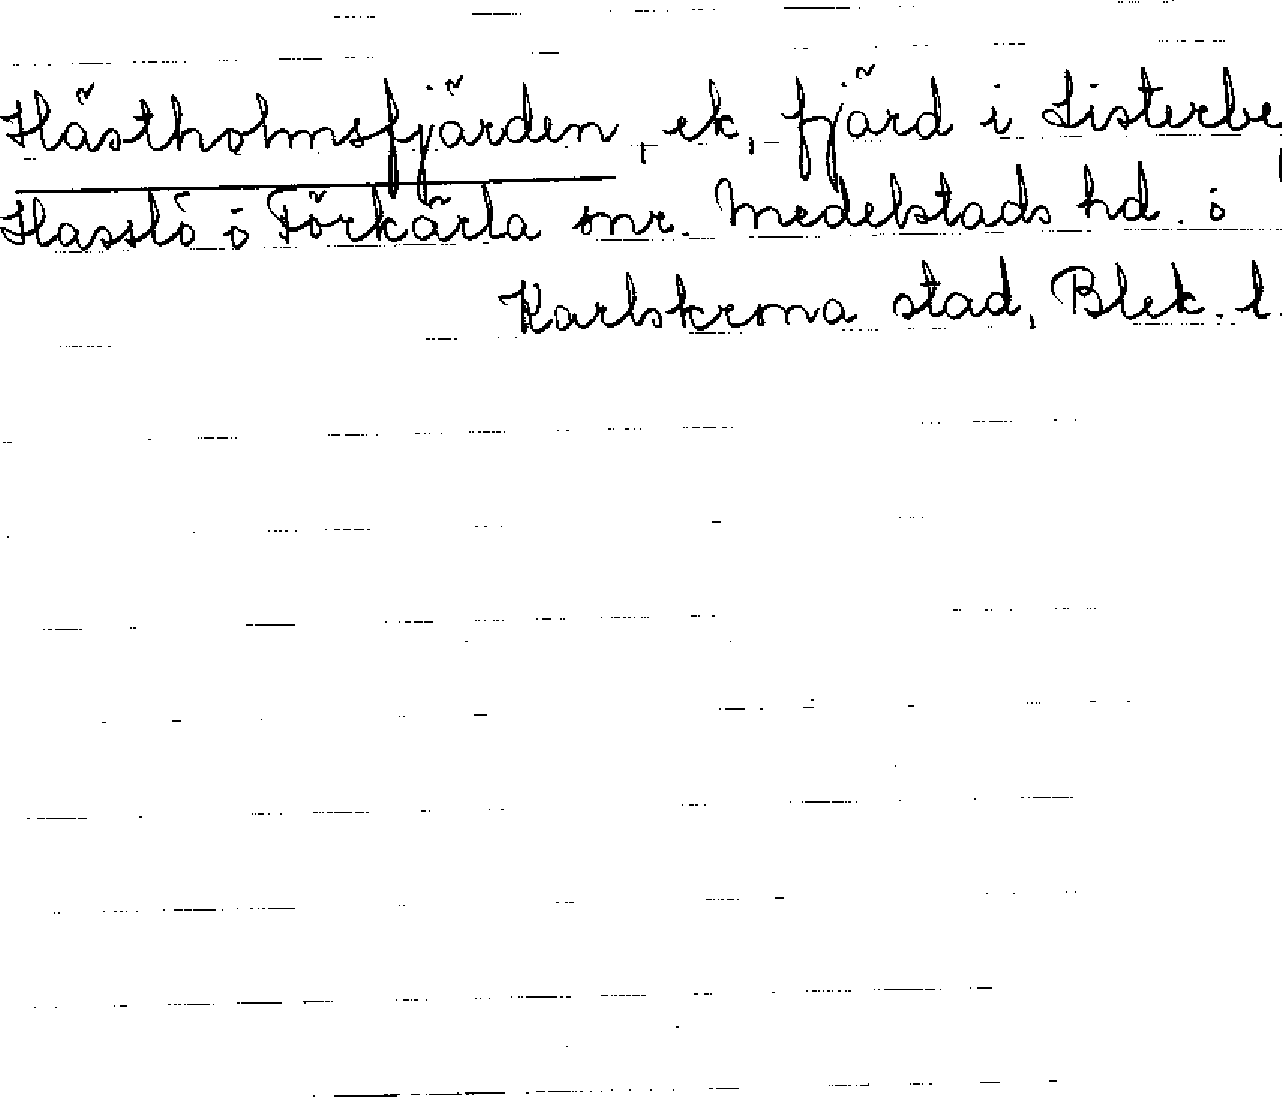 Hästholmsfjärden, ek, fjärd i Listerby,
Hasslö i Förkärla snr. Medelstads hd. i
Karlskrona stad, Blek. l.